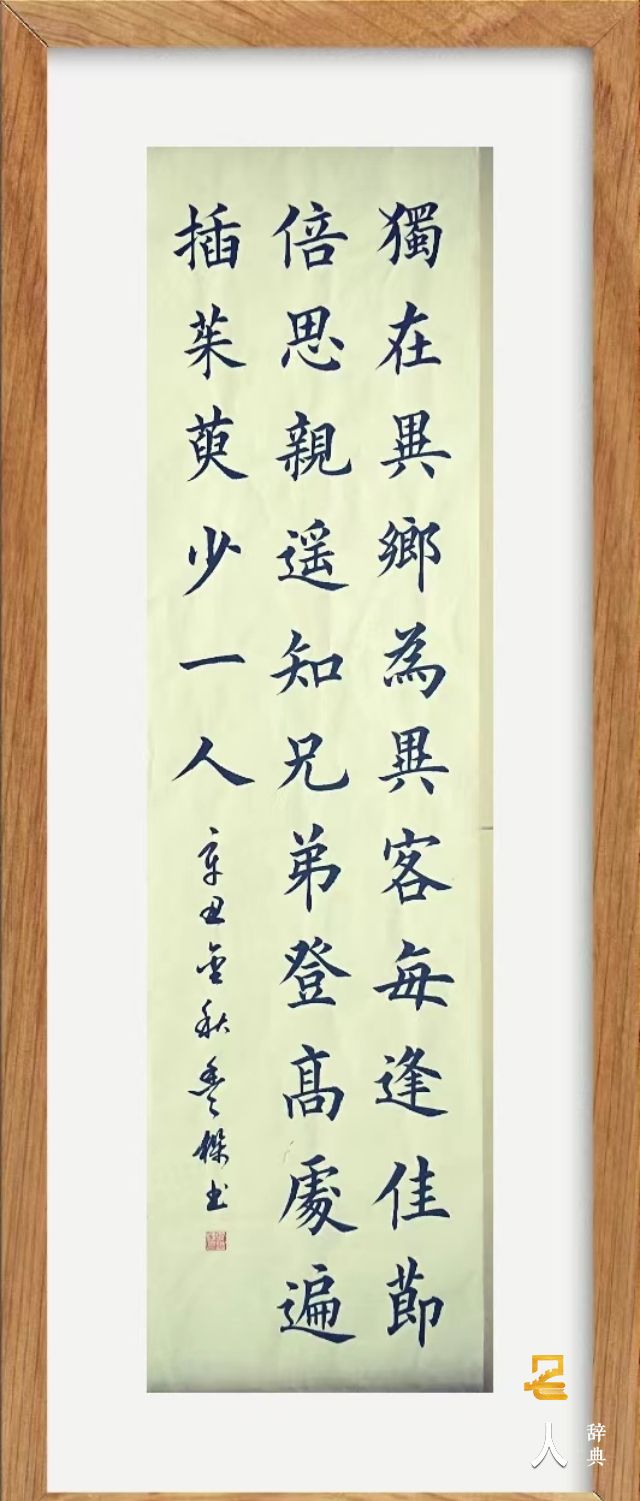 獨在異鄉為異客每逢佳節
倍思親遥知兄弟登髙處遍
插茱萸少一人
辛丑金秋秀傑书
人
辞典